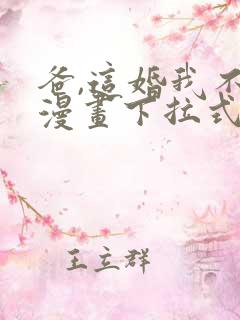 爸,這婚我不
漫畫下拉式
王立群